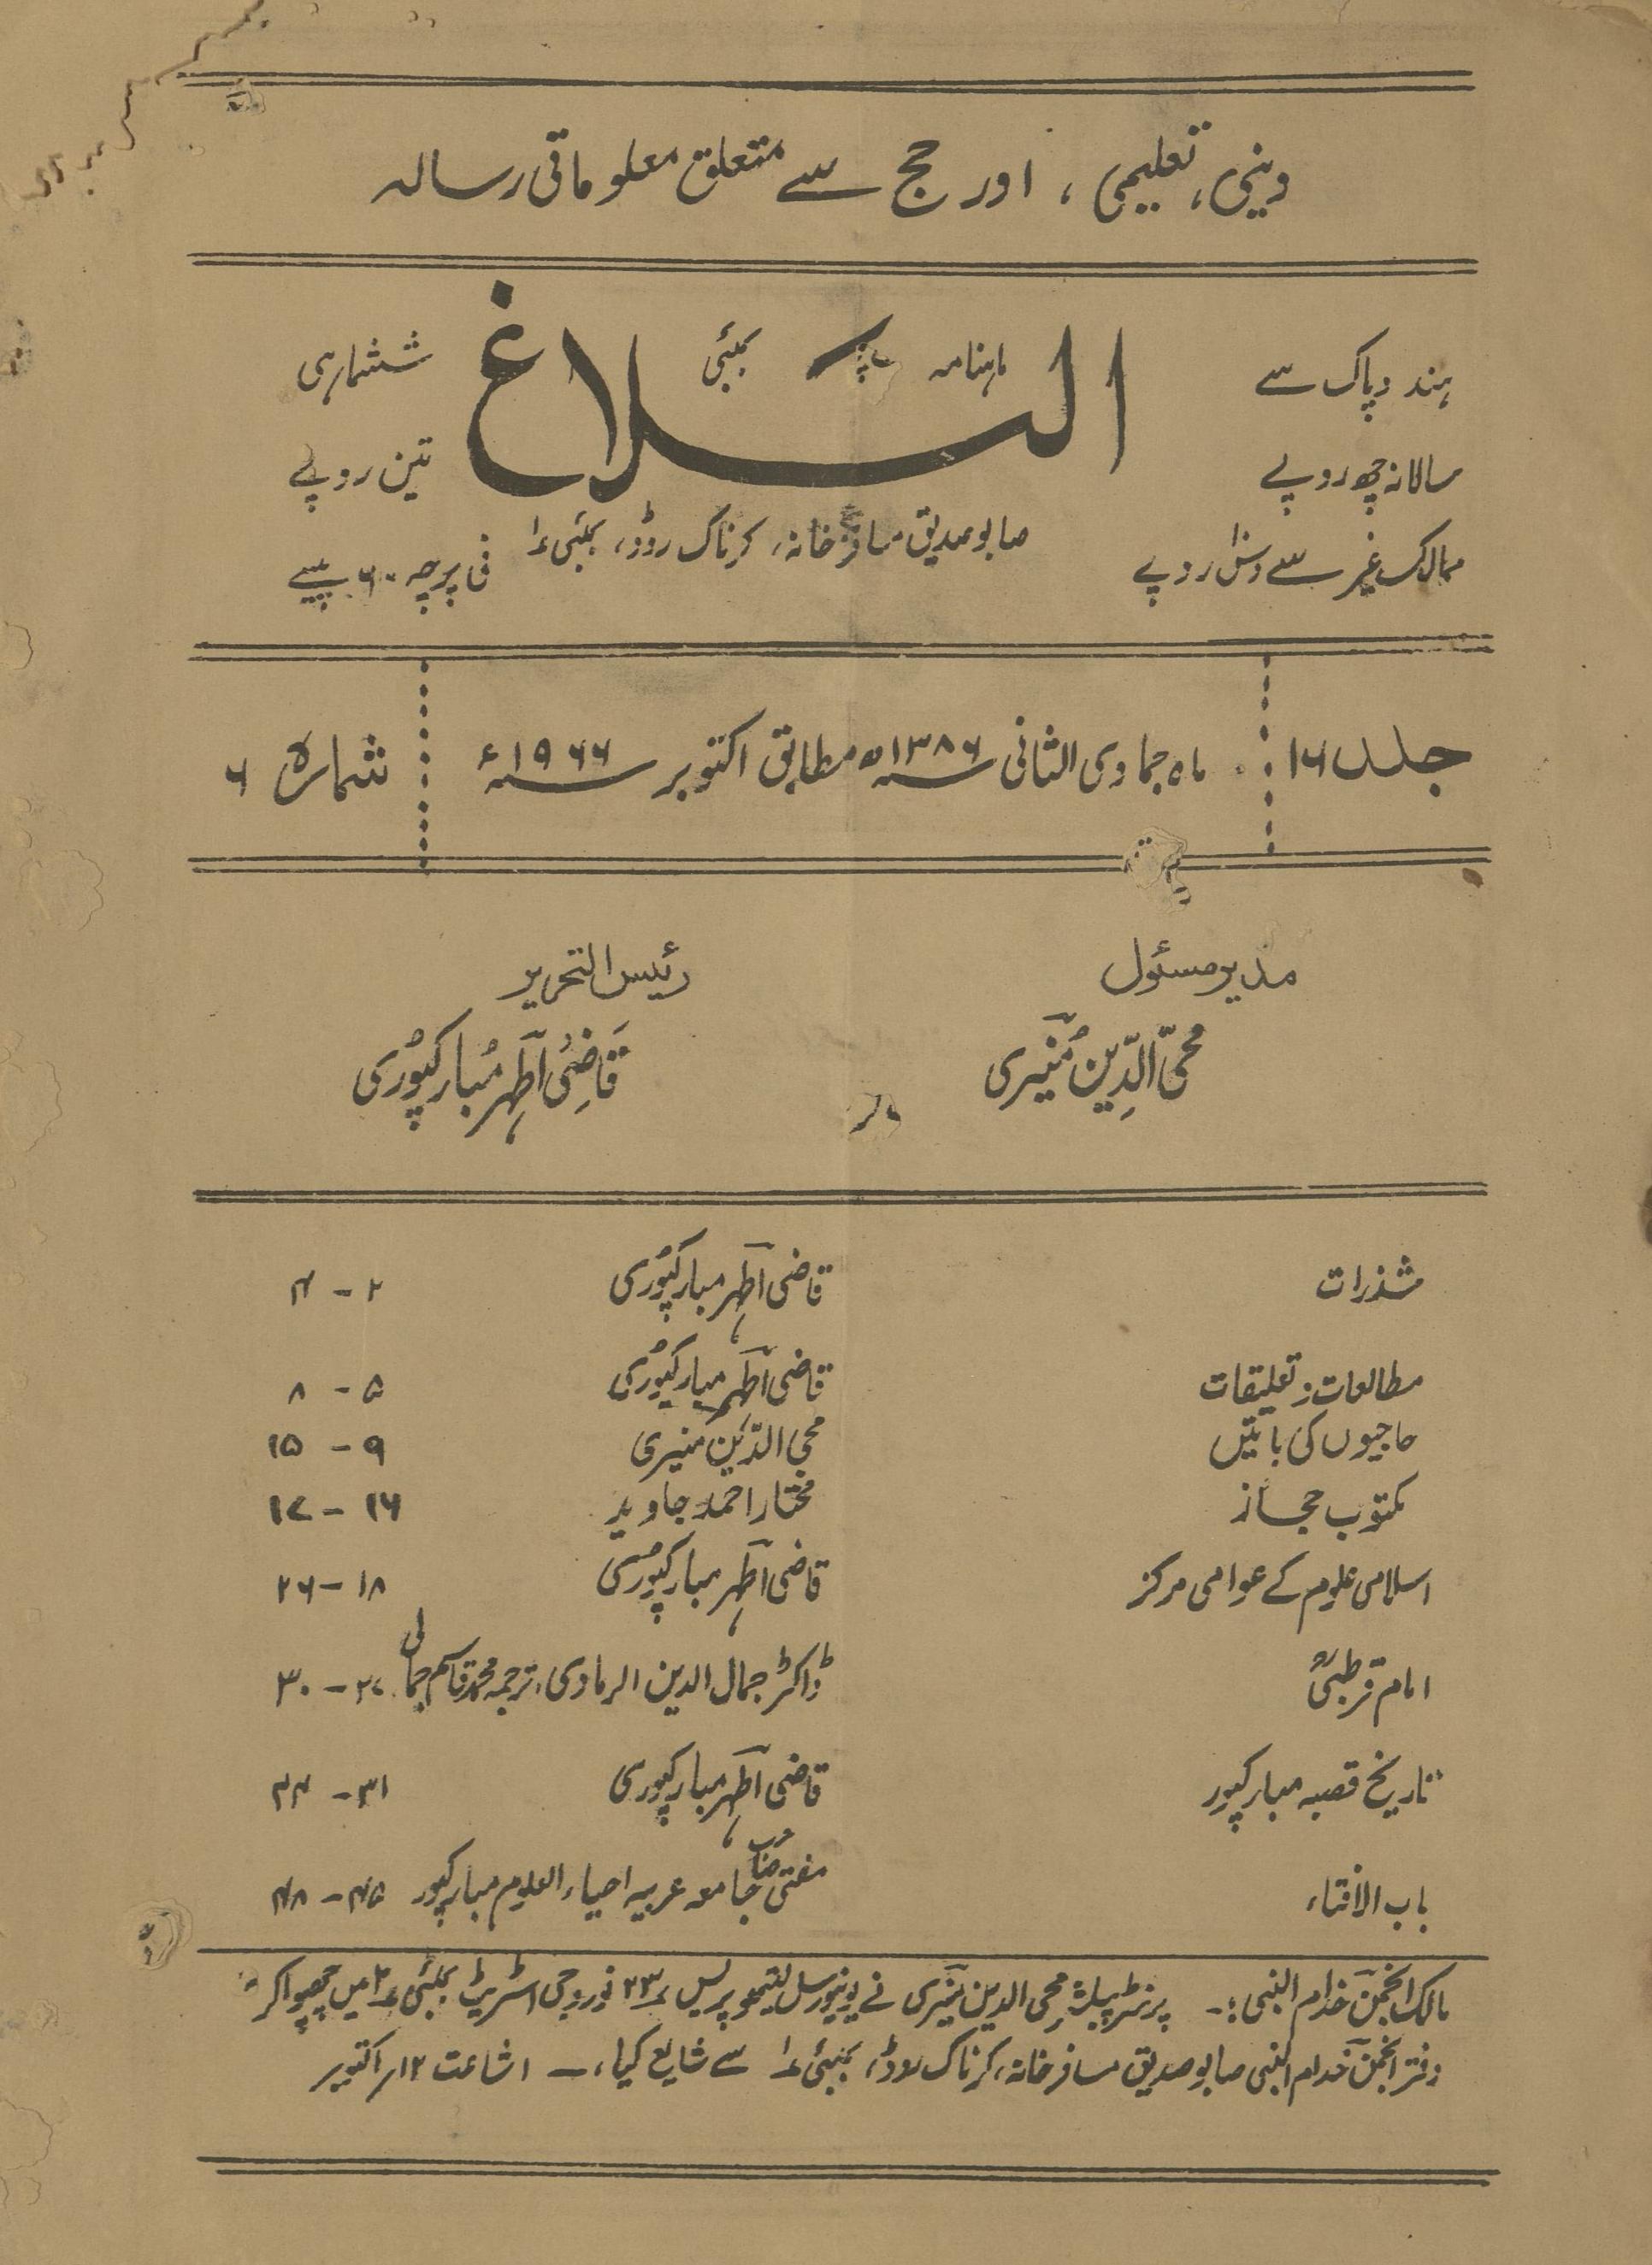 دینی، تعلیمی، اور حج سے متعلق معلوماتی رسالہ
ہند و پاک سے
ماہنامہ
بمبئی
ششماہی
البلاغ
سالانہ چھ روپے
تین روپے
ممالک غیر سے دس روپے
صابو صدیق مسافر خانہ، کرناک روڈ، بمبئی ۱
فی پرچہ ۶۰ پیسے
جلد ۱۶
ماہ جمادی الثانی سنہ ۱۳۸۶ھ مطابق اکتوبر سنہ ۱۹۶۶ء
شمارہ ۶
مدیر مسئول
رئیس التحریر
محی الدین منیری
قاضی اطہر مبارکپوری
شذرات قاضی اطہر مبارکپوری ۲ - ۴
مطالعات و تعلیقات قاضی اطہر مبارکپوری ۵ - ۸
حاجیوں کی باتیں محی الدین منیری ۹ - ۱۵
مکتوب حجاز مختار احمد جاوید ۱۶ - ۱۷
اسلامی علوم کے عوامی مرکز قاضی اطہر مبارکپوری ۱۸ - ۲۶
امام قرطبیؒ ڈاکٹر جمال الدین الرمادی، ترجمہ محمد قاسم جمالی ۲۷ - ۳۰
تاریخ قصبہ مبارکپور قاضی اطہر مبارکپوری ۳۱ - ۴۴
باب الافتاء مفتی صاحب جامعہ عربیہ احیاء العلوم مبارکپور ۴۵ - ۴۸
مالک انجمن خدام النبی :- پرنٹر پبلشر محی الدین منیری نے یونیورسل لیتھو پریس ۲۳ نوروجی اسٹریٹ بمبئی ۲ میں چھپوا کر
دفتر انجمن خدام النبی صابو صدیق مسافر خانہ، کرناک روڈ، بمبئی ۱ سے شایع کیا، ــ اشاعت ۱۲ اکتوبر